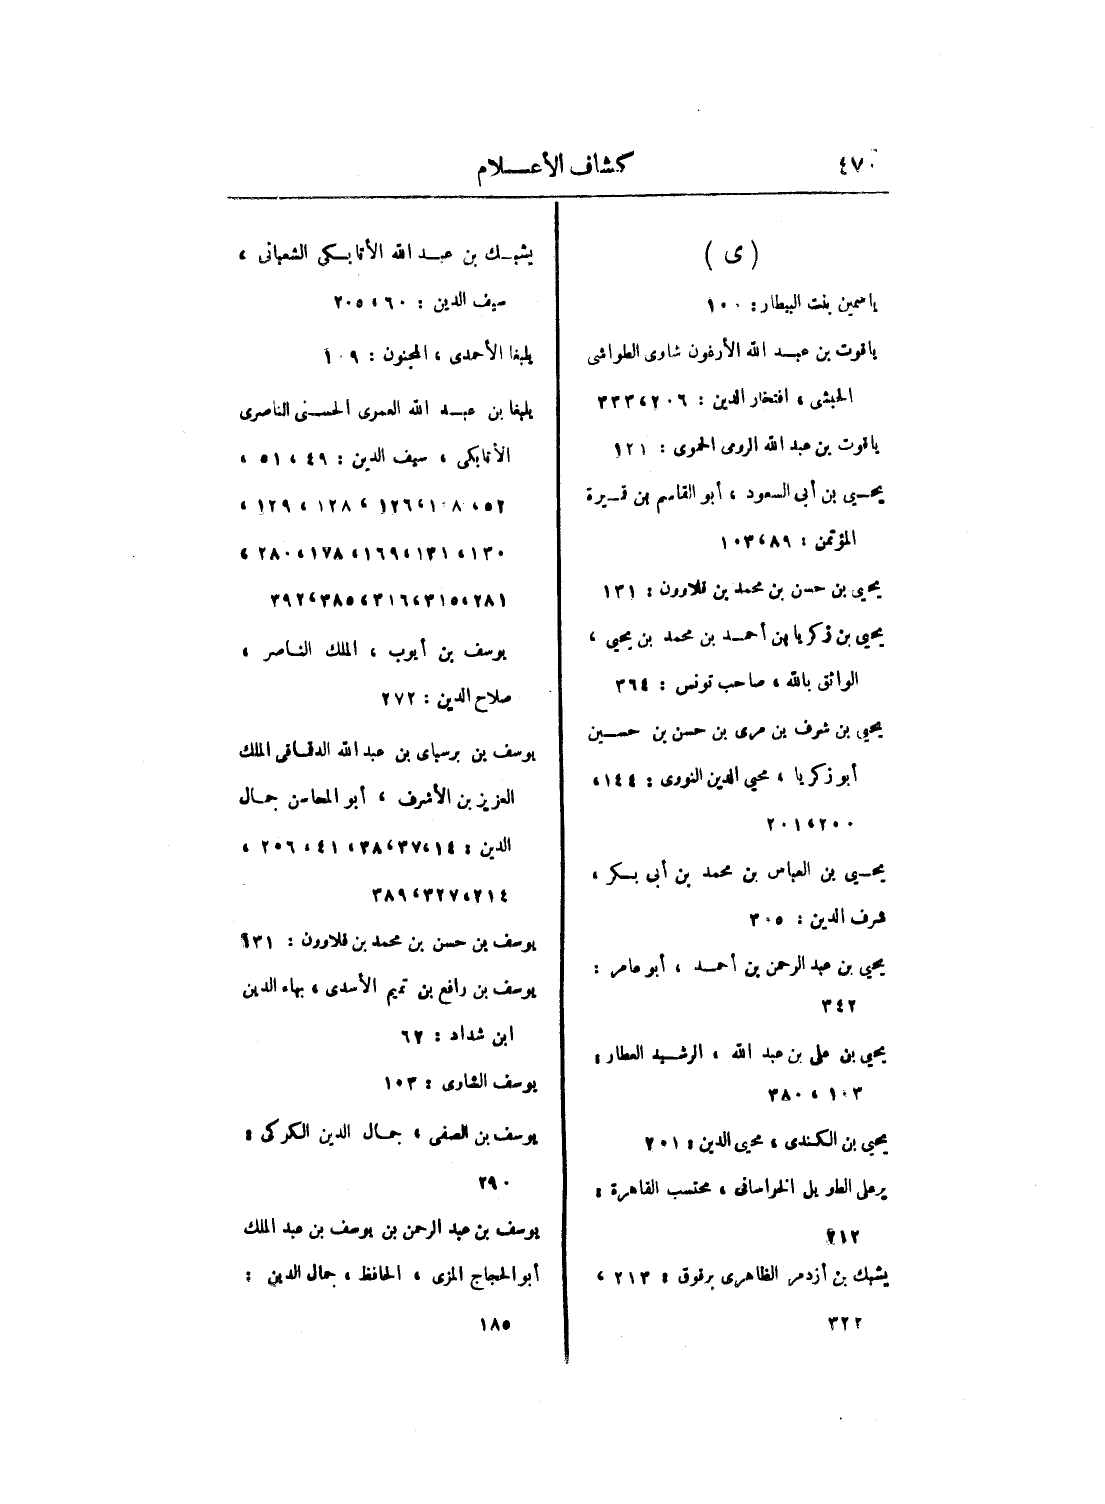 ٤٧٠
كشاف الأعلام
(ى)
ياسمين بنت البيطار : ١٠٠
ياقوت بن عبد الله الأرغون شاوى الطواشى
الحبشى ، افتخار الدين : ٢٠٦ ، ٣٣٣
ياقوت بن عبد الله الرومى الحموى : ١٢١
يحيى بن أبى السعود ، أبو القاسم بن قميرة
المؤتمن : ٨٩ ، ١٠٣
يحيى بن حسن بن محمد بن قلاوون : ١٣١
يحيى بن زكريا بن أحمد بن محمد بن يحيى ،
الواثق بالله ، صاحب تونس : ٣٦٤
يحيى بن شرف بن مرى بن حسن بن حسين
أبو زكريا ، محيى الدين النووى : ١٤٤ ،
٢٠٠ ، ٢٠١
يحيى بن العباس بن محمد بن أبى بكر ،
شرف الدين : ٣٠٥
يحيى بن عبد الرحمن بن أحمد ، أبو عامر :
٣٤٢
يحيى بن على بن عبد الله ، الرشيد العطار :
١٠٣ ، ٣٨٠
يحيى بن الكندى ، محيى الدين : ٢٠١
يرعلى الطويل الخراسانى ، محتسب القاهرة :
٢١٢
يشبك بن أزدمر الظاهرى برقوق : ٢١٣ ،
٣٢٢
يشبك بن عبد الله الأتابكى الشعبانى ،
سيف الدين : ٦٠ ، ٢٠٥
يلبغا الأحمدى ، المجنون : ١٠٩
يلبغا بن عبد الله العمرى الحسنى الناصرى
الأتابكى ، سيف الدين : ٤٩ ، ٥١ ،
٥٢ ، ١٠٨ ، ١٢٦ ، ١٢٨ ، ١٢٩ ،
١٣٠ ، ١٣١ ، ١٦٩ ، ١٧٨ ، ٢٨٠ ،
٢٨١ ، ٣١٥ ، ٣١٦ ، ٣٨٥ ، ٣٩٢
يوسف بن أيوب ، الملك الناصر ،
صلاح الدين : ٢٧٢
يوسف بن برسباى بن عبد الله الدقاقى الملك
العزيز بن الأشرف ، أبو المحاسن جمال
الدين : ١٤ ، ٣٧ ، ٣٨ ، ٤١ ، ٢٥٦ ،
٢١٤ ، ٣٢٧ ، ٣٨٩
يوسف بن حسن بن محمد بن قلاوون : ١٣١
يوسف بن رافع بن تميم الأسدى ، بهاء الدين
ابن شداد : ٦٢
يوسف الشاوى : ١٠٣
يوسف بن الصفى ، جمال الدين الكركى :
٢٩٠
يوسف بن عبد الرحمن بن يوسف بن عبد الملك
أبو الحجاج المزى ، الحافظ ، جمال الدين :
١٨٥